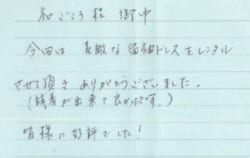 和ごころ様 御中
今回は 素敵な 留袖ドレスを レンタル
させて頂き ありがとうございました。
(結着が出来て良かったです。)
皆様に好評でした!